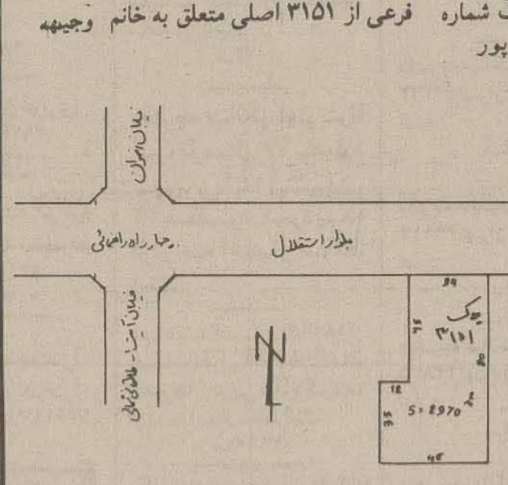 شماره فرعی از ۳۱۵۱ اصلی متعلق به خانم وجیهه
پور
خیابان تهران
چهارراه راهنمائی
بلوار استقلال
خیابان آیت‌الله طالقانی
34
پلاک
۳۱۵۱
45
80
12
35
S=2970 m²
45
N